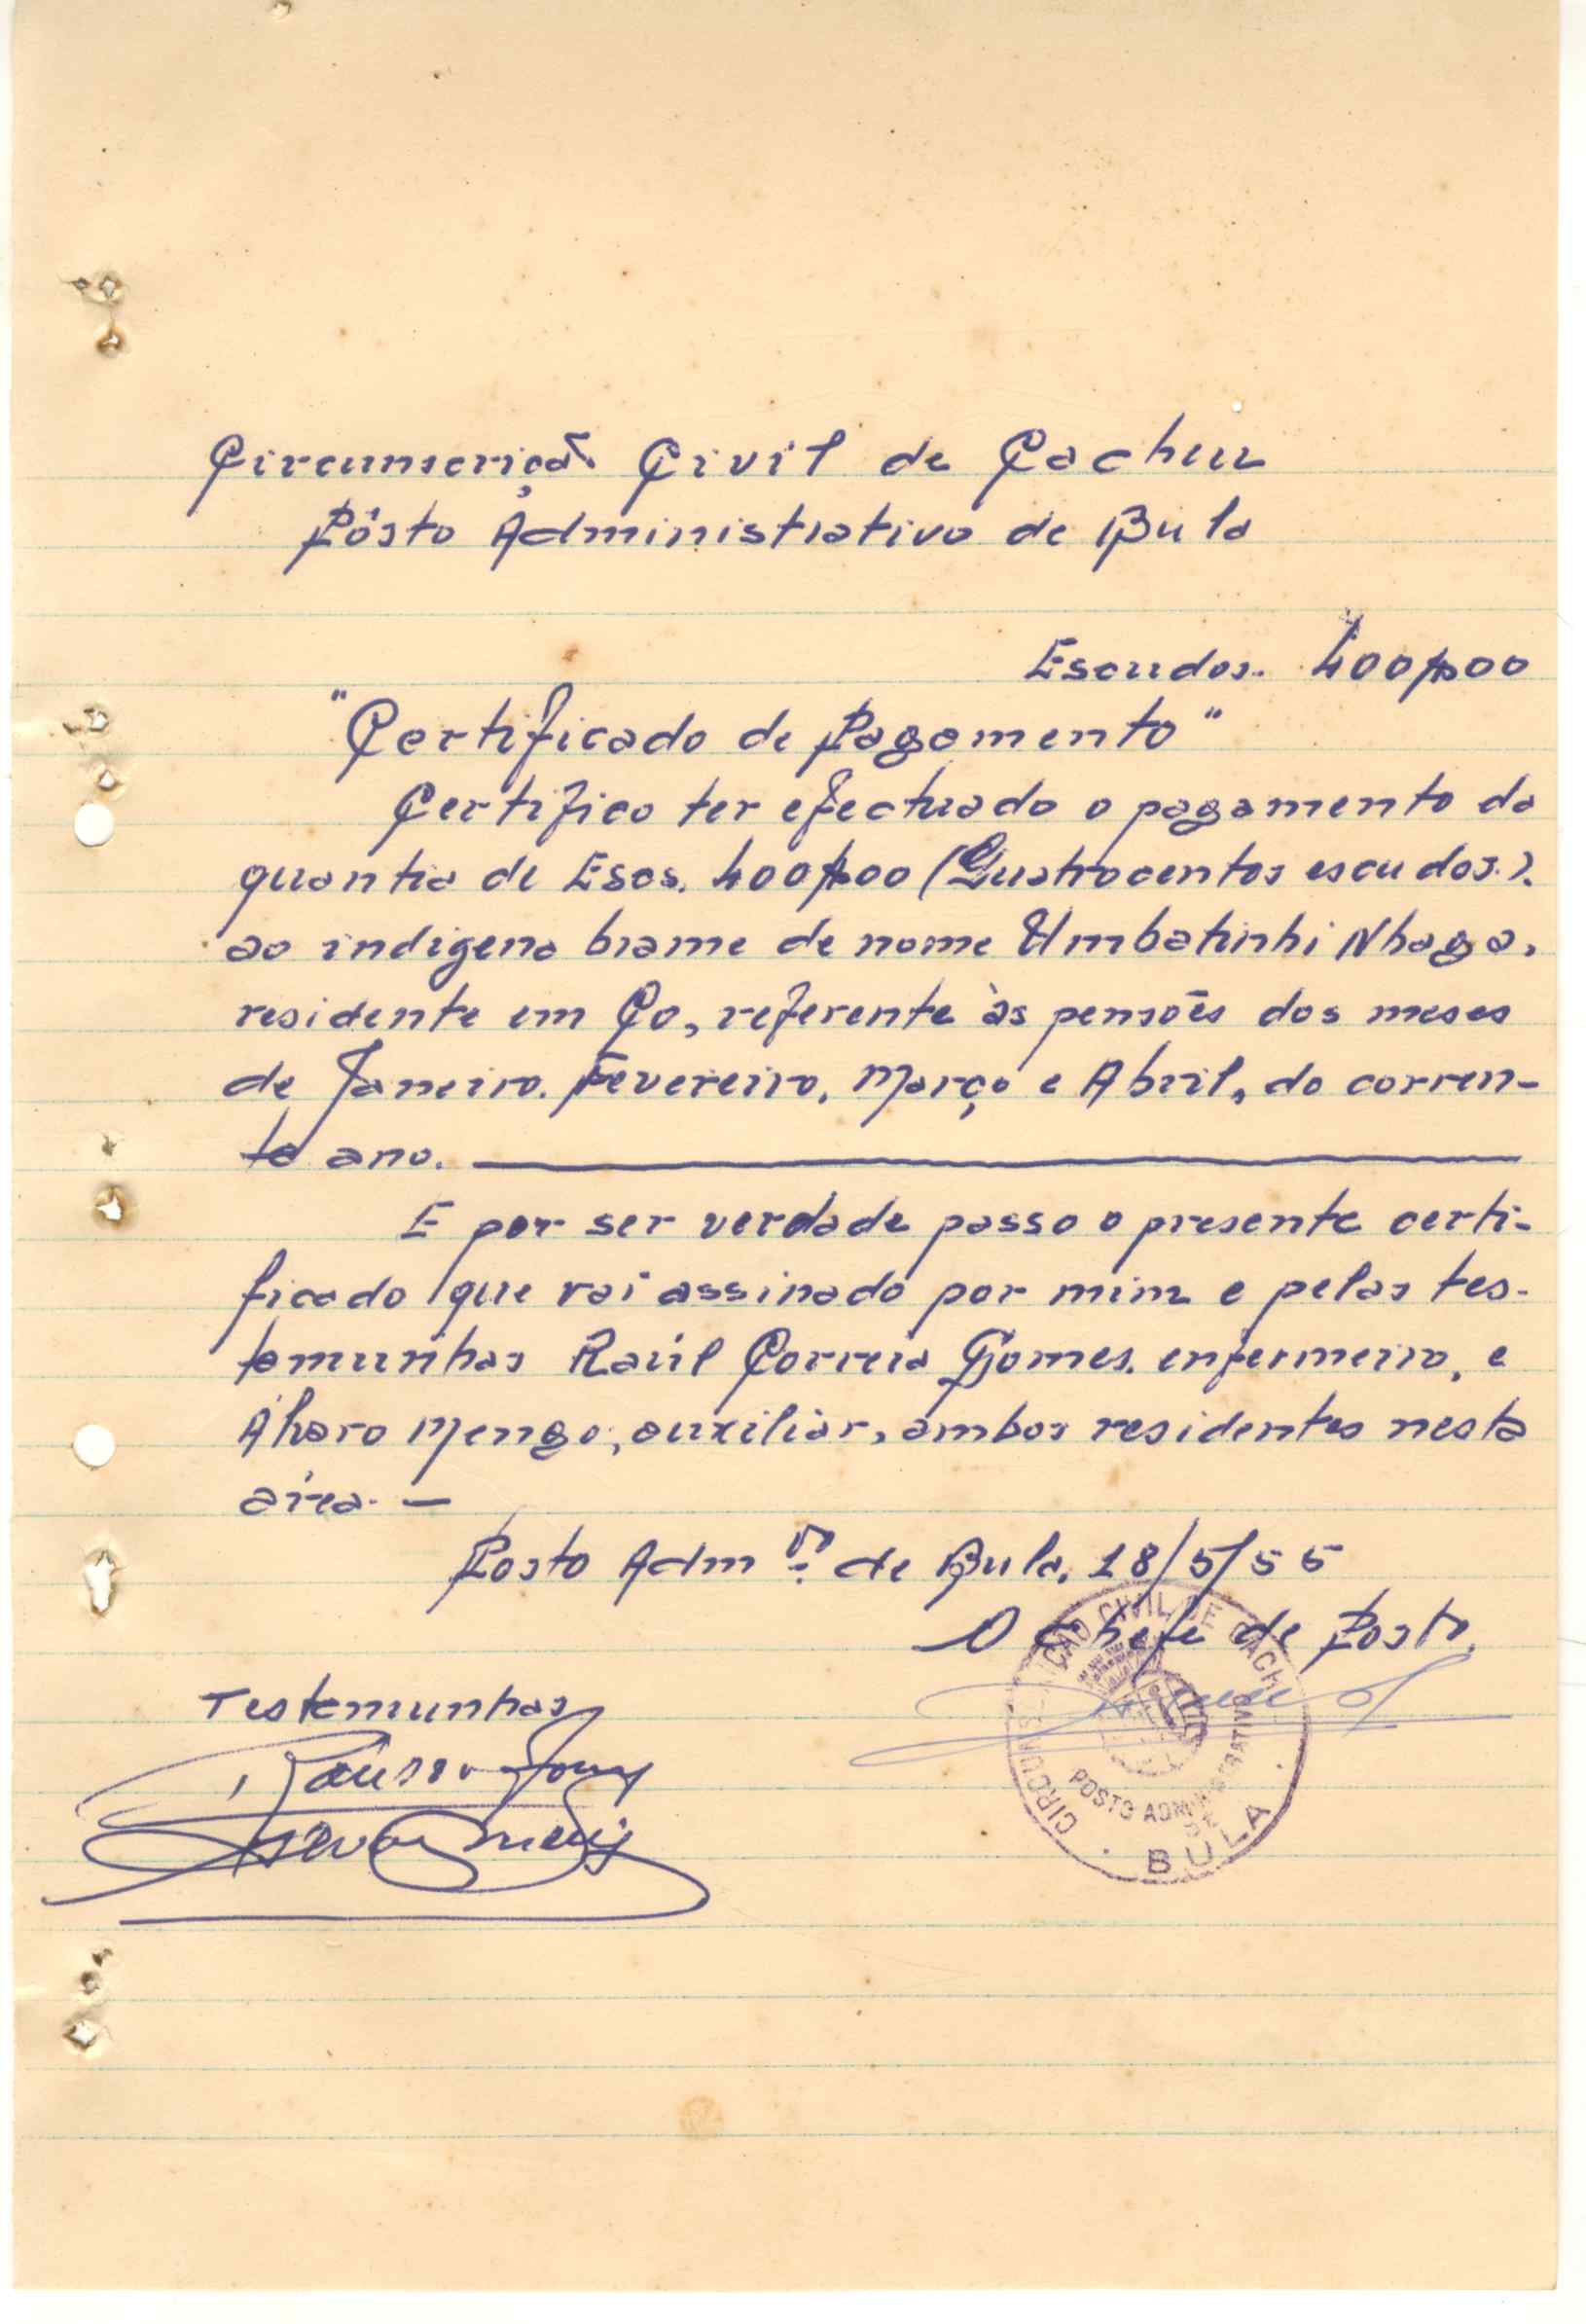 Circunscrição Civil de Cacheu
Pôsto Administrativo de Bula
Escudos. 400$00
"Certificado de Pagamento"
Certifico ter efectuado o pagamento da
quantia de Escs. 400$00 (Quatrocentos escudos.).
ao indigena brame de nome Umbatinhi Nhaga,
residente em Có, referente às pensões dos meses
de Janeiro. Fevereiro, Março e Abril, do corren-
te ano.
E por ser verdade passo o presente certi-
ficado que vai assinado por mim e pelas tes-
temunhas Raúl Correia Gomes. enfermeiro, e
Álvaro Mengo, auxiliar, ambos residentes nesta
área. —
Posto Admvo. de Bula, 18/5/55
O Chefe de Posto,
Testemunhas
CIRCUNSCRIÇÃO CIVIL DE CACHEU
POSTO ADMINISTRATIVO
BULA